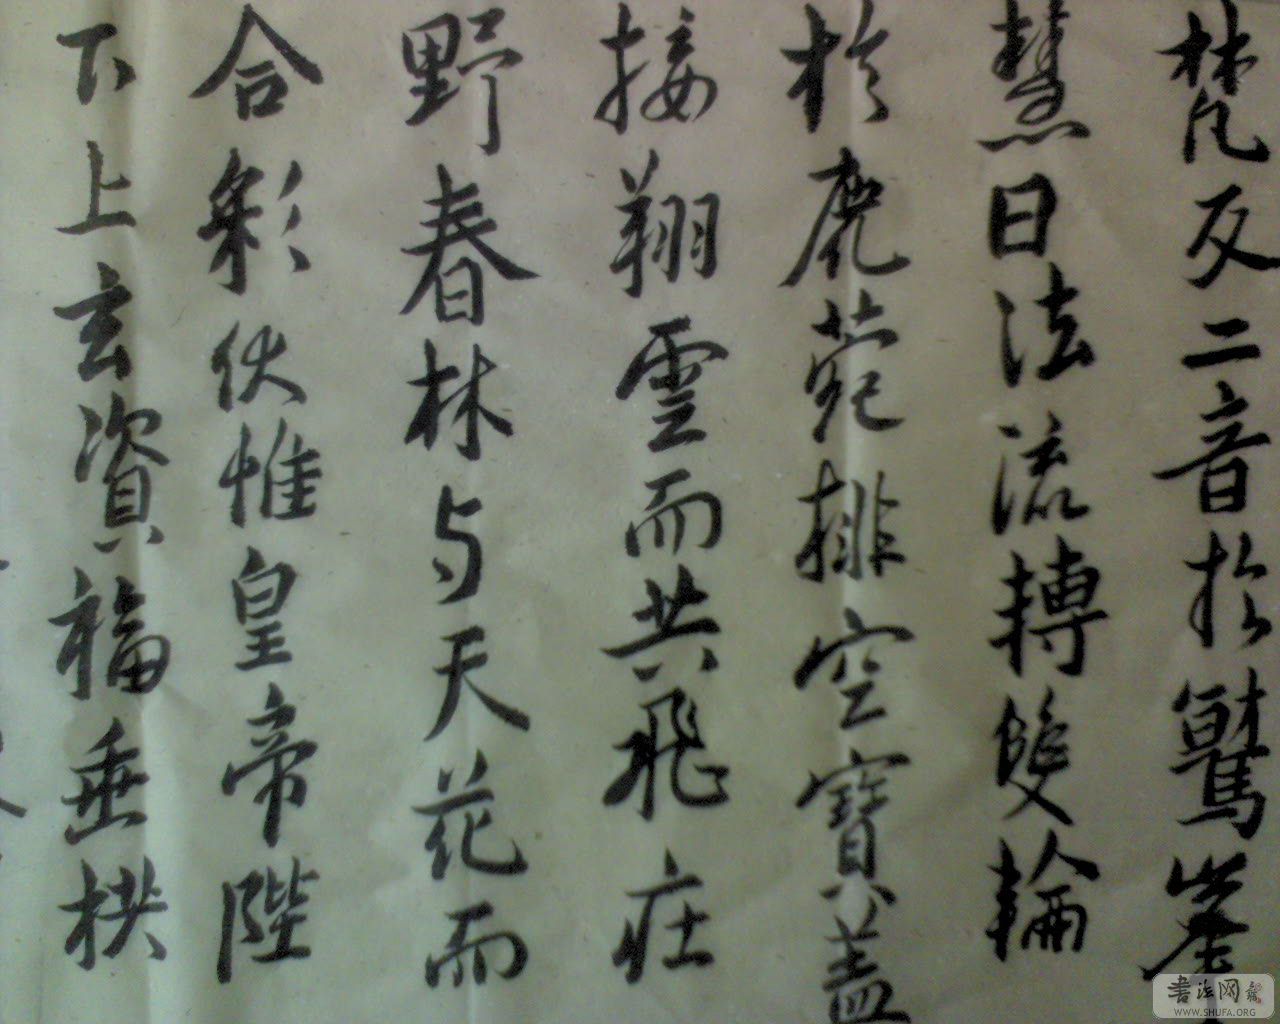 梵交二音於鷲峯
慧日法流轉雙輪
於鹿菀排空寶蓋
接翔雲而共飛庄
野春林与天花而
合彩伏惟皇帝陛
下上玄資福垂拱
书法网
WWW.SHUFA.ORG